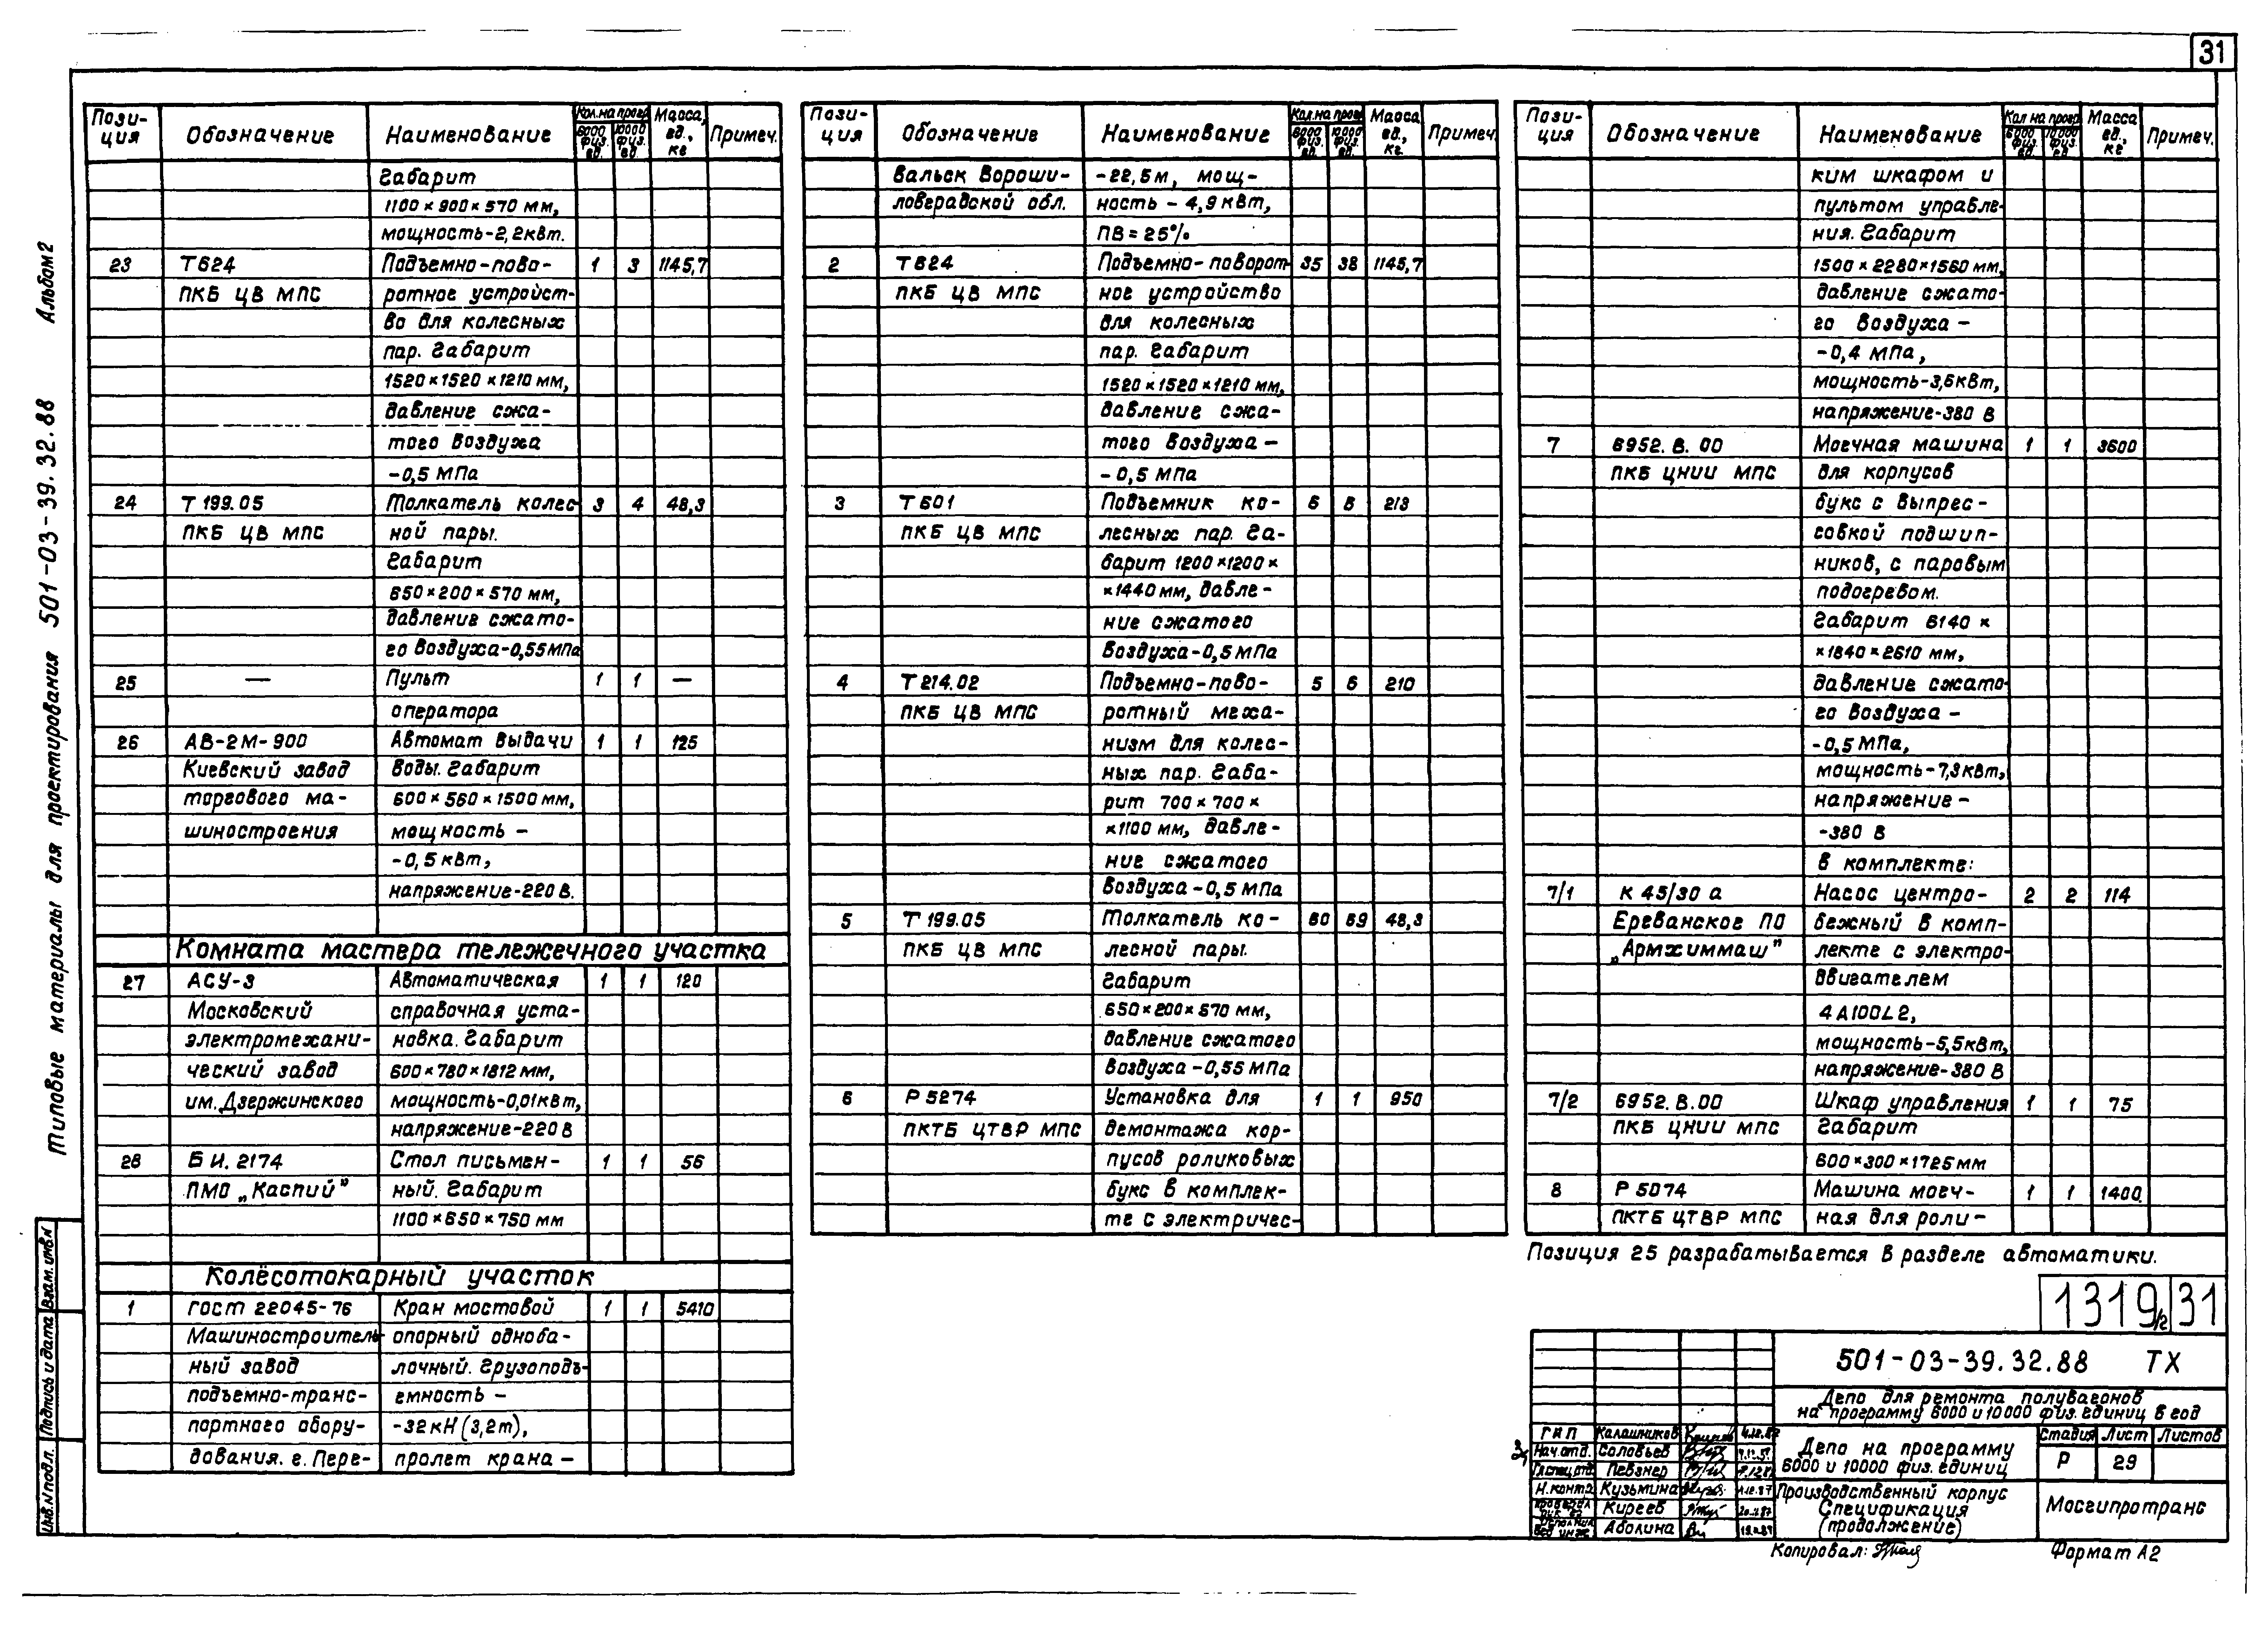 31
Альбом 2
Типовые материалы для проектирования 501-03-39.32.88
Пози-ция Обозначение Наименование Кол. на прогр. 6000 физ. ед. 10000 физ. ед. Масса, ед., кг Примеч.
Габарит
1100×900×570 мм,
мощность-2,2кВт.
23 Т624 Подъемно-пово- 1 3 1145,7
ПКБ ЦВ МПС ротное устройст-
во для колесных
пар. Габарит
1520×1520×1210 мм,
давление сжа-
того воздуха
-0,5 МПа
24 Т 199.05 Толкатель колес- 3 4 48,3
ПКБ ЦВ МПС ной пары.
Габарит
650×200×570 мм,
давление сжато-
го воздуха-0,55МПа
25 — Пульт 1 1 —
оператора
26 АВ-2М-900 Автомат выдачи 1 1 125
Киевский завод воды. Габарит
торгового ма- 600×560×1500 мм,
шиностроения мощность -
-0,5 кВт,
напряжение-220 В.
Комната мастера тележечного участка
27 АСУ-3 Автоматическая 1 1 120
Московский справочная уста-
электромехани- новка. Габарит
ческий завод 600×780×1812 мм,
им. Дзержинского мощность-0,01кВт,
напряжение-220 В
28 БИ. 2174 Стол письмен- 1 1 56
ПМО „Каспий" ный. Габарит
1100×650×750 мм
Колёсотокарный участок
1 ГОСТ 22045-76 Кран мостовой 1 1 5410
Машинострoитель- опорный одноба-
ный завод лочный. Грузоподъ-
подъемно-транс- емность -
портного обору- -32 кН (3,2т),
дования. г. Пере- пролет крана -
Пози-ция Обозначение Наименование Кол. на прогр 6000 физ. ед. 10000 физ. ед. Масса ед., кг. Примеч.
вальск Вороши- -22,5м, мощ-
ловградской обл. ность - 4,9 кВт,
ПВ = 25%
2 Т624 Подъемно-поворот- 35 38 1145,7
ПКБ ЦВ МПС ное устройство
для колесных
пар. Габарит
1520×1520×1210 мм,
давление сжа-
того воздуха -
-0,5 МПа
3 Т601 Подъемник ко- 6 6 213
ПКБ ЦВ МПС лесных пар. Га-
барит 1200×1200×
×1440 мм, давле-
ние сжатого
воздуха-0,5 МПа
4 Т 214.02 Подъемно-пово- 5 6 210
ПКБ ЦВ МПС ротный меха-
низм для колес-
ных пар. Габа-
рит 700×700×
×1100 мм, давле-
ние сжатого
воздуха-0,5 МПа
5 Т 199.05 Толкатель ко- 60 69 48,3
ПКБ ЦВ МПС лесной пары.
Габарит
650×200×570 мм,
давление сжатого
воздуха-0,55 МПа
6 Р 5274 Установка для 1 1 950
ПКТБ ЦТВР МПС демонтажа кор-
пусов роликовых
букс в комплек-
те с электричес-
Пози-ция Обозначение Наименование Кол на прогр 6000 физ. ед. 10000 физ. ед Масса ед., кг Примеч.
ким шкафом и
пультом управле-
ния. Габарит
1500×2280×1560 мм,
давление сжато-
го воздуха -
-0,4 МПа,
мощность-3,6кВт,
напряжение-380 В
7 6952. В. 00 Моечная машина 1 1 3600
ПКБ ЦНИИ МПС для корпусов
букс с выпрес-
совкой подшип-
ников, с паровым
подогревом.
Габарит 6140×
×1840×2610 мм,
давление сжато-
го воздуха -
-0,5 МПа,
мощность-7,3кВт,
напряжение -
-380 В
в комплекте:
7/1 К 45/30 а Насос центро- 2 2 114
Ереванское ПО бежный в комп-
„Армхиммаш" лекте с электро-
двигателем
4А100L2,
мощность-5,5кВт,
напряжение-380 В
7/2 6952. В.00 Шкаф управления 1 1 75
ПКБ ЦНИИ МПС Габарит
600×300×1725 мм
8 Р 5074 Машина моеч- 1 1 1400
ПКТБ ЦТВР МПС ная для роли-
Позиция 25 разрабатывается в разделе автоматики.
1319/2 31
501-03-39.32.88 ТХ
Депо для ремонта полувагонов
на программу 6000 и 10000 физ. единиц в год
ГИП Калашников
Нач.отд. Соловьев
Гл.спец.отд. Певзнер
Н.контр. Кузьмина
Проверил Киреев
Аболина
Депо на программу
6000 и 10000 физ. единиц
Стадия Лист Листов
Р 29
Производственный корпус
Спецификация
(продолжение)
Мосгипротранс
Копировал:
Формат А2
Взам. инв.N
Подпись и дата
Инв.N подл.